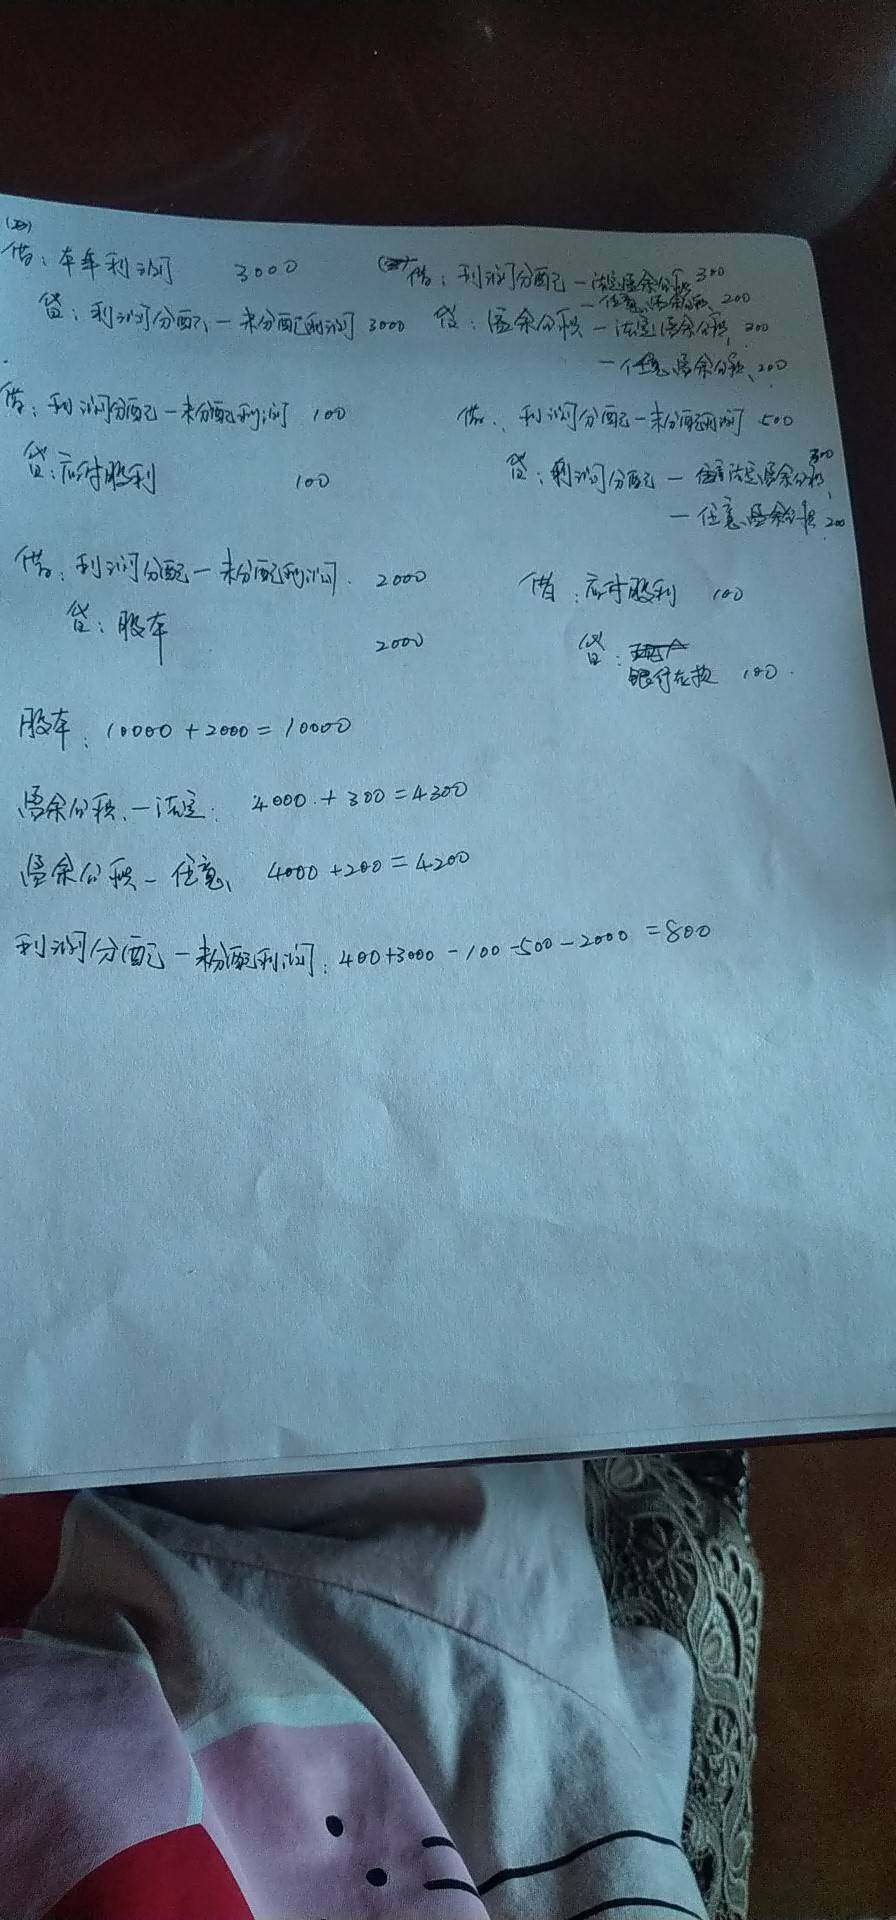 借：本年利润 3000
贷：利润分配－未分配利润 3000
借：利润分配－未分配利润 100
贷：应付股利 100
借：利润分配－未分配利润 2000
贷：股本 2000
借：利润分配－法定盈余公积 300
－任意盈余公积 200
贷：盈余公积－法定盈余公积 300
－任意盈余公积 200
借：利润分配－未分配利润 500
贷：利润分配－法定盈余公积 300
－任意盈余公积 200
借：应付股利 100
贷：
银行存款 100
股本：10000+2000=10000
盈余公积－法定：4000+300=4300
盈余公积－任意 4000+200=4200
利润分配－未分配利润：400+3000-100-500-2000=800